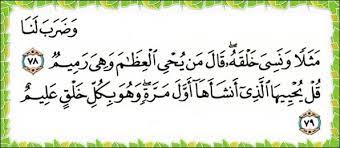 وَضَرَبَ لَنَا
مَثَلًا وَنَسِىَ خَلْقَهُۥ ۖ قَالَ مَن يُحْىِ ٱلْعِظَـٰمَ وَهِىَ رَمِيمٌ ٧٨
قُلْ يُحْيِيهَا ٱلَّذِىٓ أَنشَأَهَآ أَوَّلَ مَرَّةٍ ۖ وَهُوَ بِكُلِّ خَلْقٍ عَلِيمٌ
٧٩